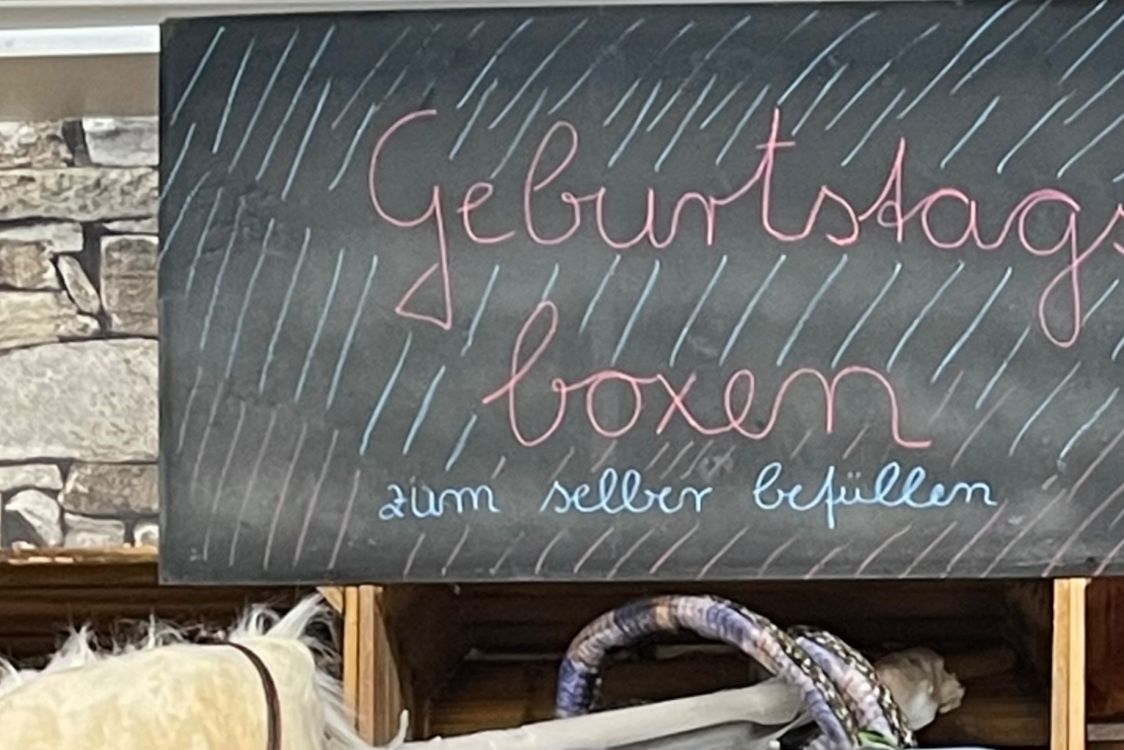 Geburtstags
boxen
zum selber befüllen